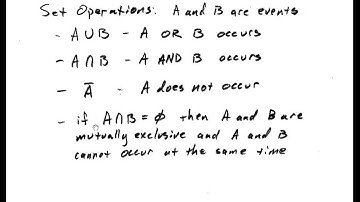 Set Operations: A and B are events
- A ∪ B - A OR B occurs
- A ∩ B - A AND B occurs
- A̅ - A does not occur
- if A∩B = ∅ then A and B are
mutually exclusive and A and B
cannot occur at the same time